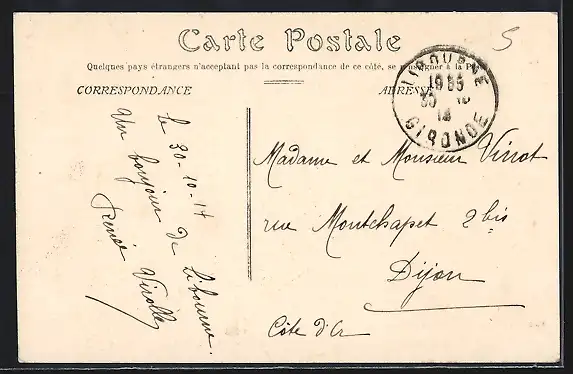 Carte Postale
Quelques pays étrangers n'acceptant pas la correspondance de ce côté, se renseigner à la
CORRESPONDANCE
ADRESSE
LIBOURNE
GIRONDE
5
le 30-10-14
Un bonjour de Libourne.
Renée Virolle
Madame et Monsieur Virrot
rue Montchapet 2 bis
Dijon
Côte d'Or